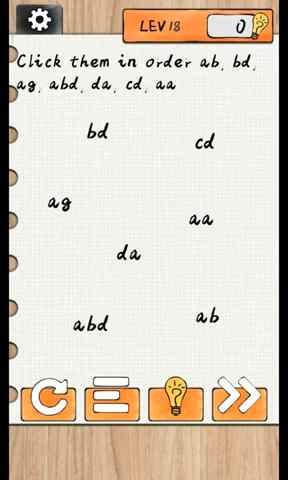 LEV18
0
Click them in order ab, bd,
ag, abd, da, cd, aa
bd
cd
ag
aa
da
ab
abd